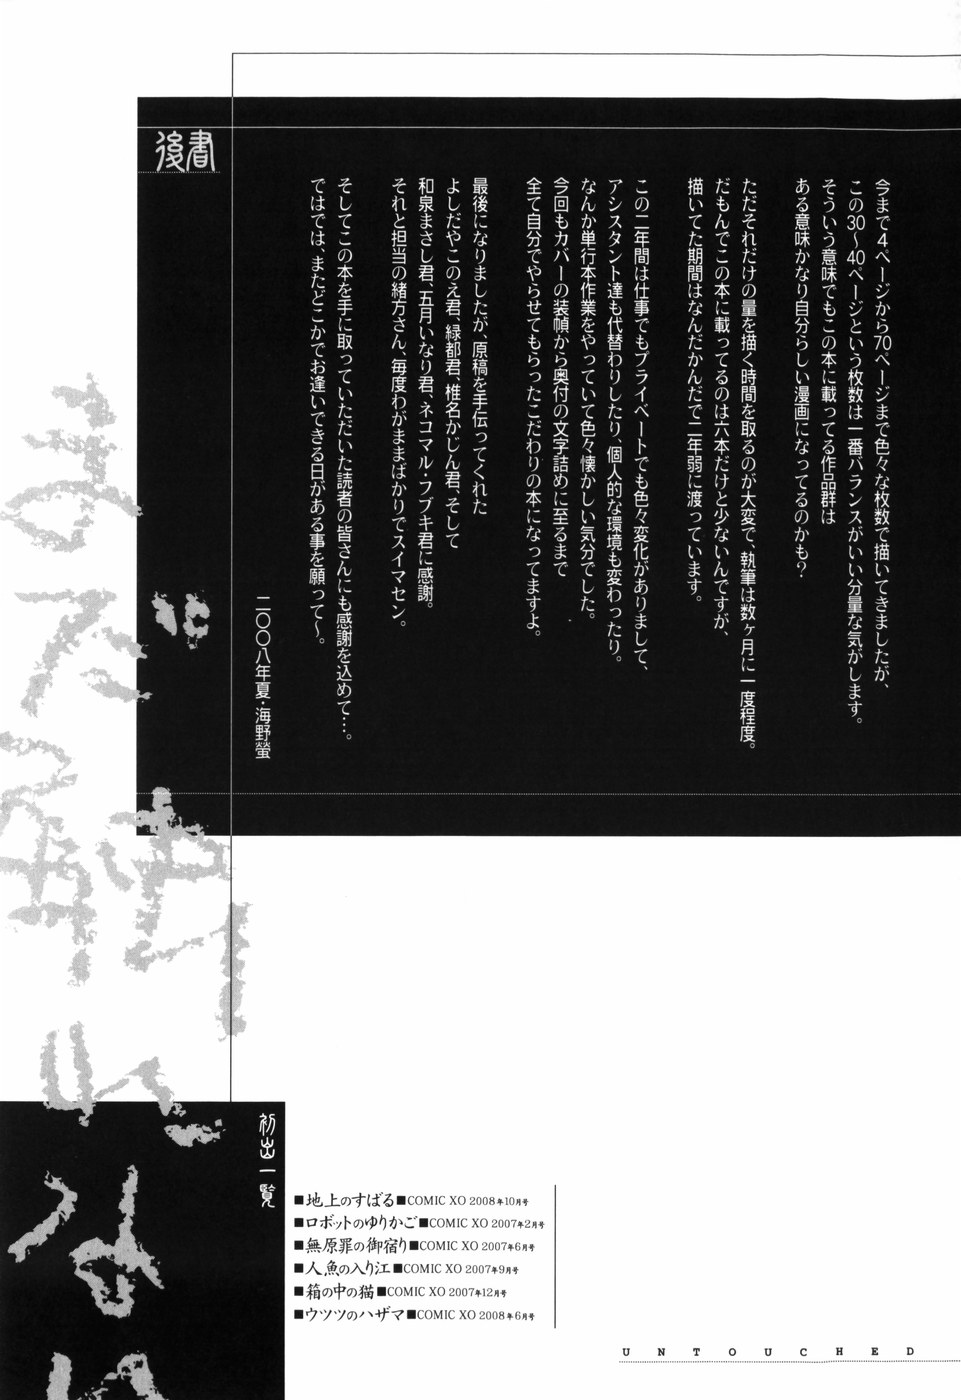 後書
今まで4ページから70ページまで色々な枚数で描いてきましたが、
この30〜40ページという枚数は一番バランスがいい分量な気がします。
そういう意味でもこの本に載ってる作品群は
ある意味かなり自分らしい漫画になってるのかも?
ただそれだけの量を描く時間を取るのが大変で、執筆は数ヶ月に一度程度。
だもんでこの本に載ってるのは六本だけと少ないんですが、
描いてた期間はなんだかんだで二年弱に渡っています。
この二年間は仕事でもプライベートでも色々変化がありまして、
アシスタント達も代替わりしたり、個人的な環境も変わったり。
なんか単行本作業をやっていて色々懐かしい気分でした。
今回もカバーの装幀から奥付の文字詰めに至るまで
全て自分でやらせてもらったこだわりの本になってますよ。
最後になりましたが、原稿を手伝ってくれた
よしだやこのえ君、緑都君、椎名かじん君、そして
和泉まさし君、五月いなり君、ネコマル・フブキ君に感謝。
それと担当の緒方さん、毎度わがままばかりでスイマセン。
そしてこの本を手に取っていただいた読者の皆さんにも感謝を込めて…。
ではでは、またどこかでお逢いできる日がある事を願って〜。
二〇〇八年夏・海野螢
初出一覧
■地上のすばる■COMIC XO 2008年10月号
■ロボットのゆりかご■COMIC XO 2007年2月号
■無原罪の御宿り■COMIC XO 2007年6月号
■人魚の入り江■COMIC XO 2007年9月号
■箱の中の猫■COMIC XO 2007年12月号
■ウツツのハザマ■COMIC XO 2008年6月号
UNTOUCHED